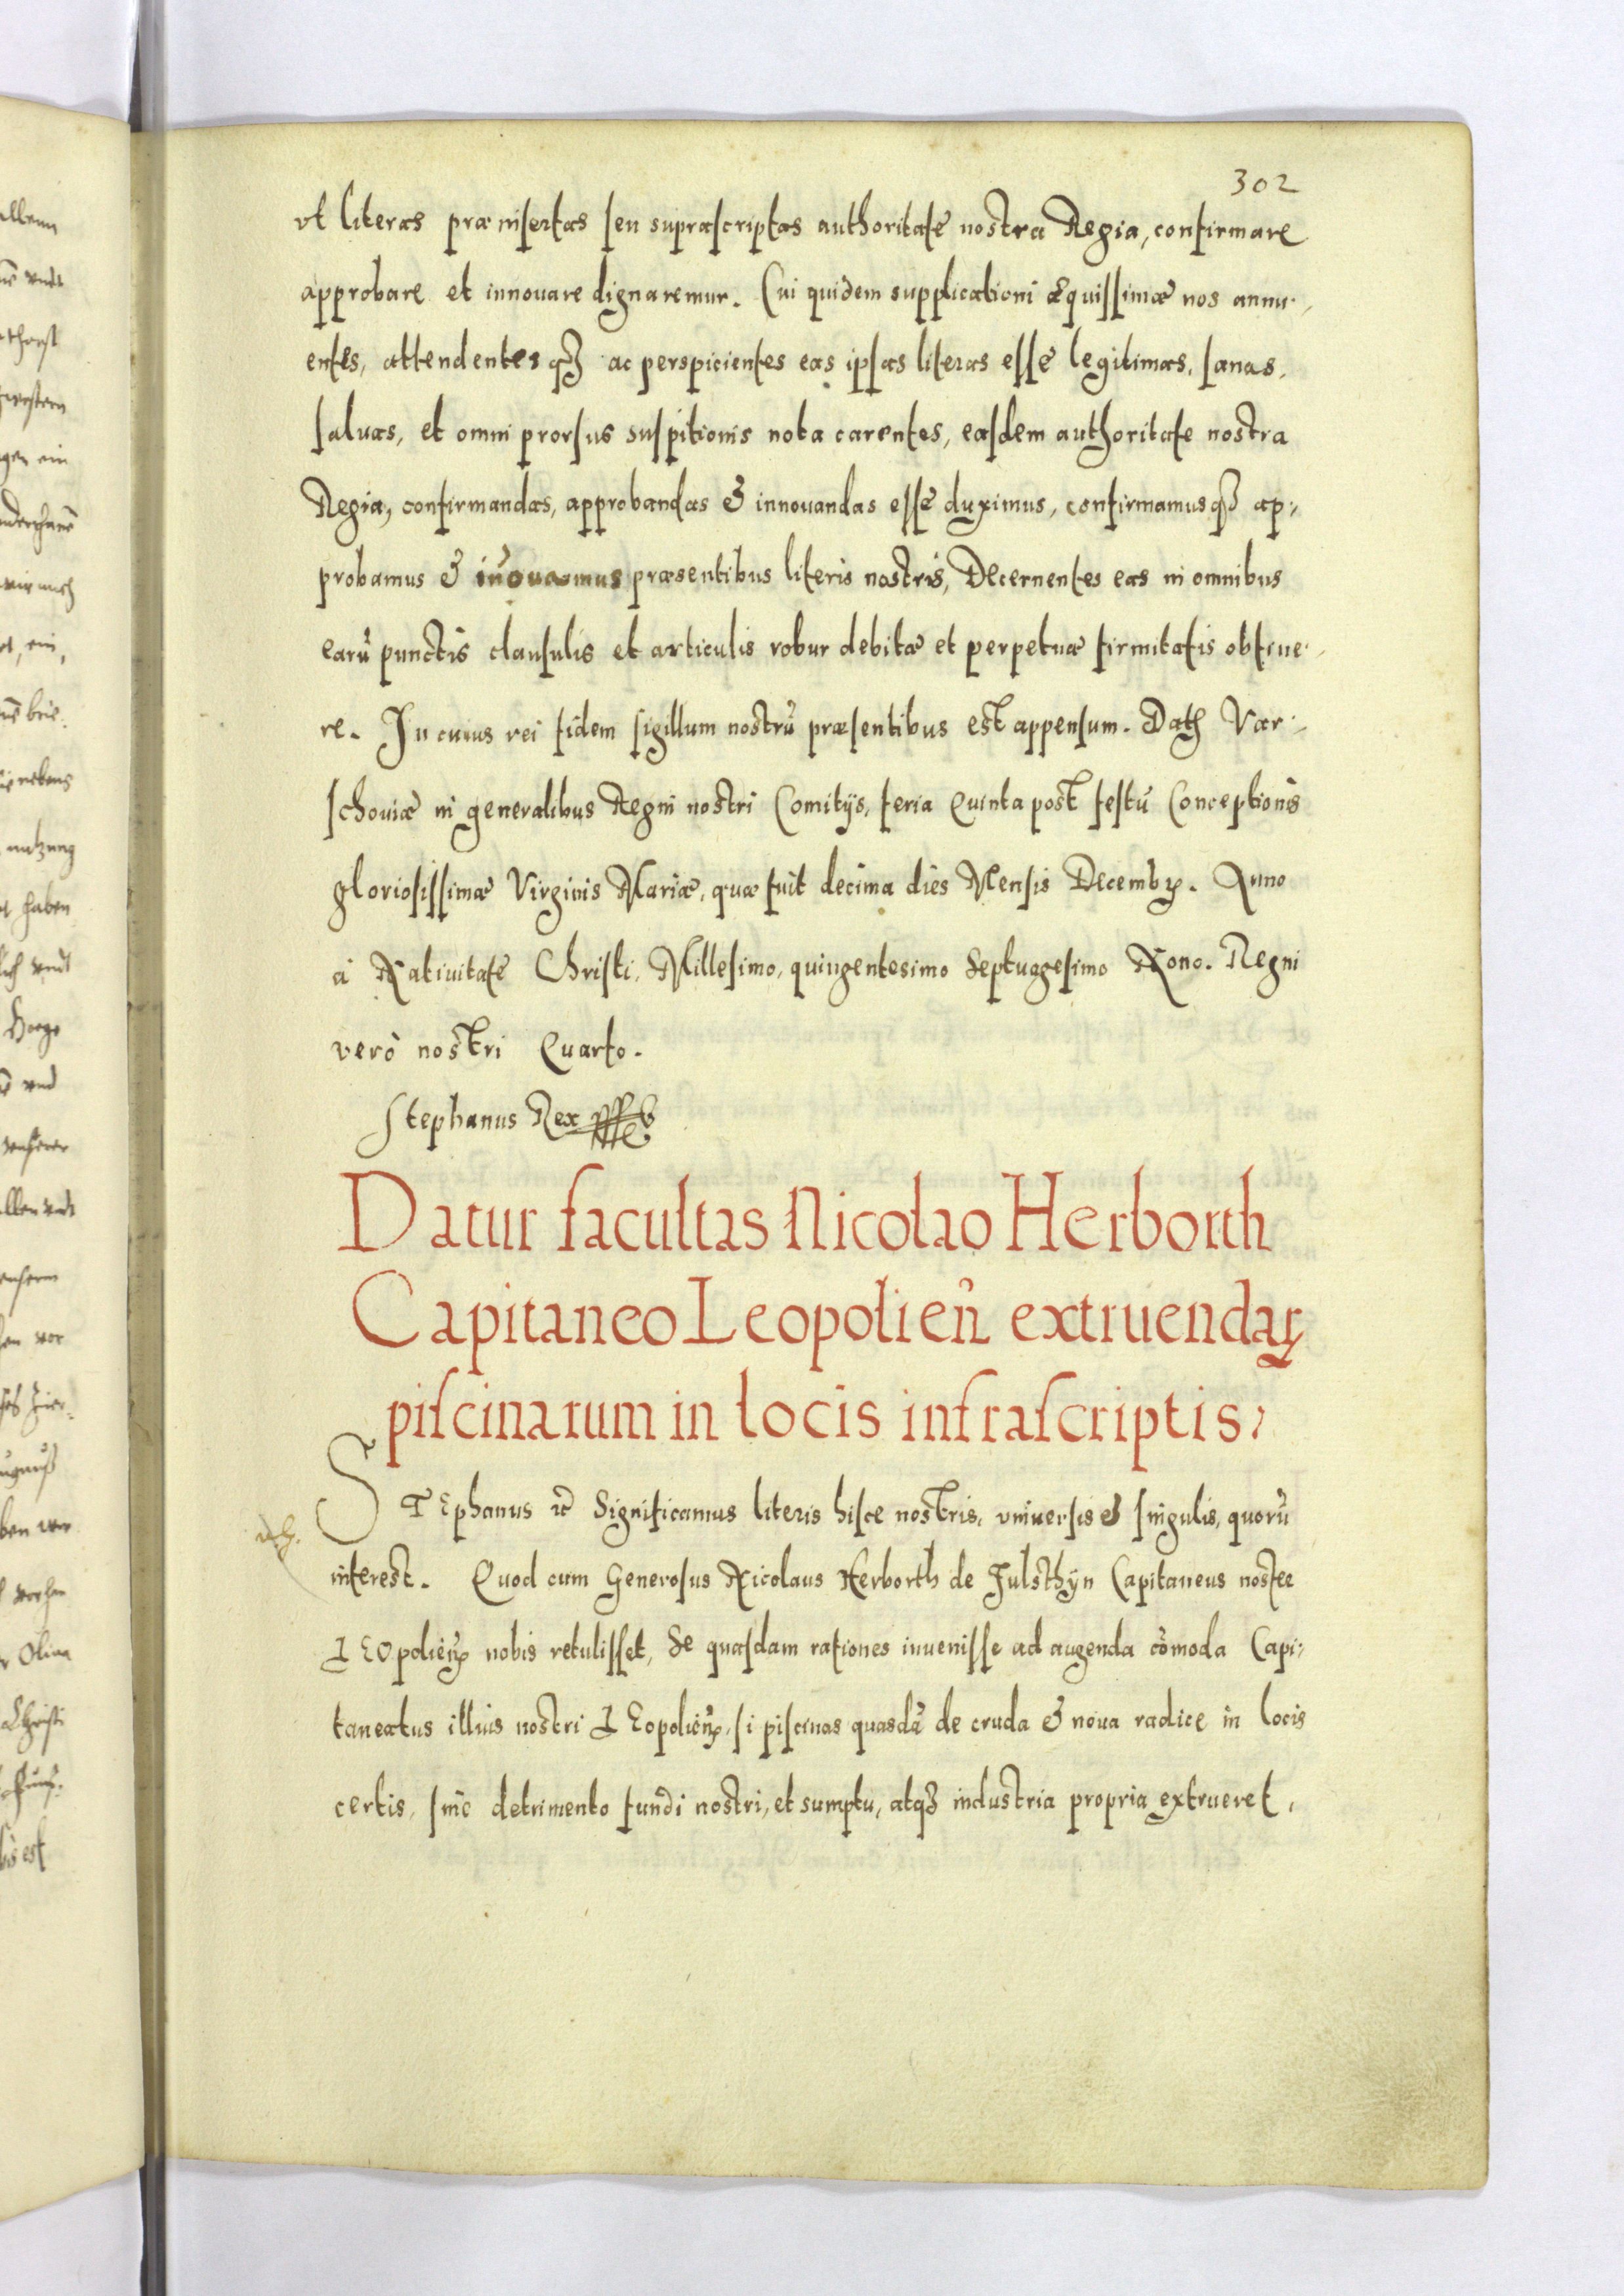 302
vt literas præinsertas seu suprascriptas authoritate nostra Regia, confirmare
approbare et innouare dignaremur. Cui quidem supplicationi æquissimæ nos annu-
entes, attendentesq₃ ac perspicientes eas ipsas literas esse legitimas, sanas,
saluas, et omni prorsus suspitionis nota carentes, easdem authoritate nostra
Regia, confirmandas, approbandas & innouandas esse duximus, confirmamusq₃ ap-
probamus & iñouamus præsentibus literis nostris, Decernentes eas in omnibus
earũ punctis clausulis et articulis robur debitæ et perpetuæ firmitatis obtine-
re. In cuius rei fidem sigillum nostrũ præsentibus est appensum. Dat Var-
schouiæ in generalibus Regni nostri Comitijs, feria Quinta post festũ Conceptionis
gloriosissimæ Virginis Mariæ, quæ fuit decima dies Mensis Decembꝝ. Anno
à Natiuitate Christi, Millesimo, quingentesimo Septuagesimo Nono. Regni
verò nostri Quarto.
Stephanus Rex
Datur facultas Nicolao Herborth
Capitaneo Leopolieñ extruendaꝝ
piscinarum in locis infrascriptis,
STEphanus ꝛc̃ Significamus literis hisce nostris, vniuersis & singulis, quorũ
interest. Quod cum Generosus Nicolaus Herborth de Fulsthyn Capitaneus noster
LEOpolieñ nobis retulisset, Se quasdam rationes inuenisse ad augenda cõmoda Capi-
taneatus illius nostri LEopolieñ, si piscinas quasdã de cruda & noua radice in locis
certis, sine detrimento fundi nostri, et sumptu, atq₃ industria propria extrueret,